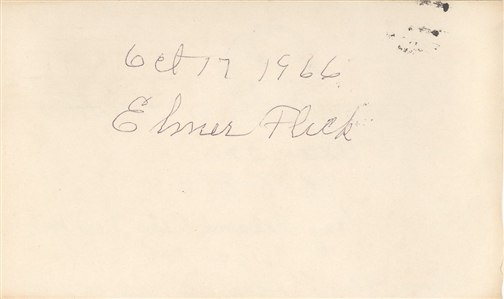 Oct 17 1966
Elmer Flick